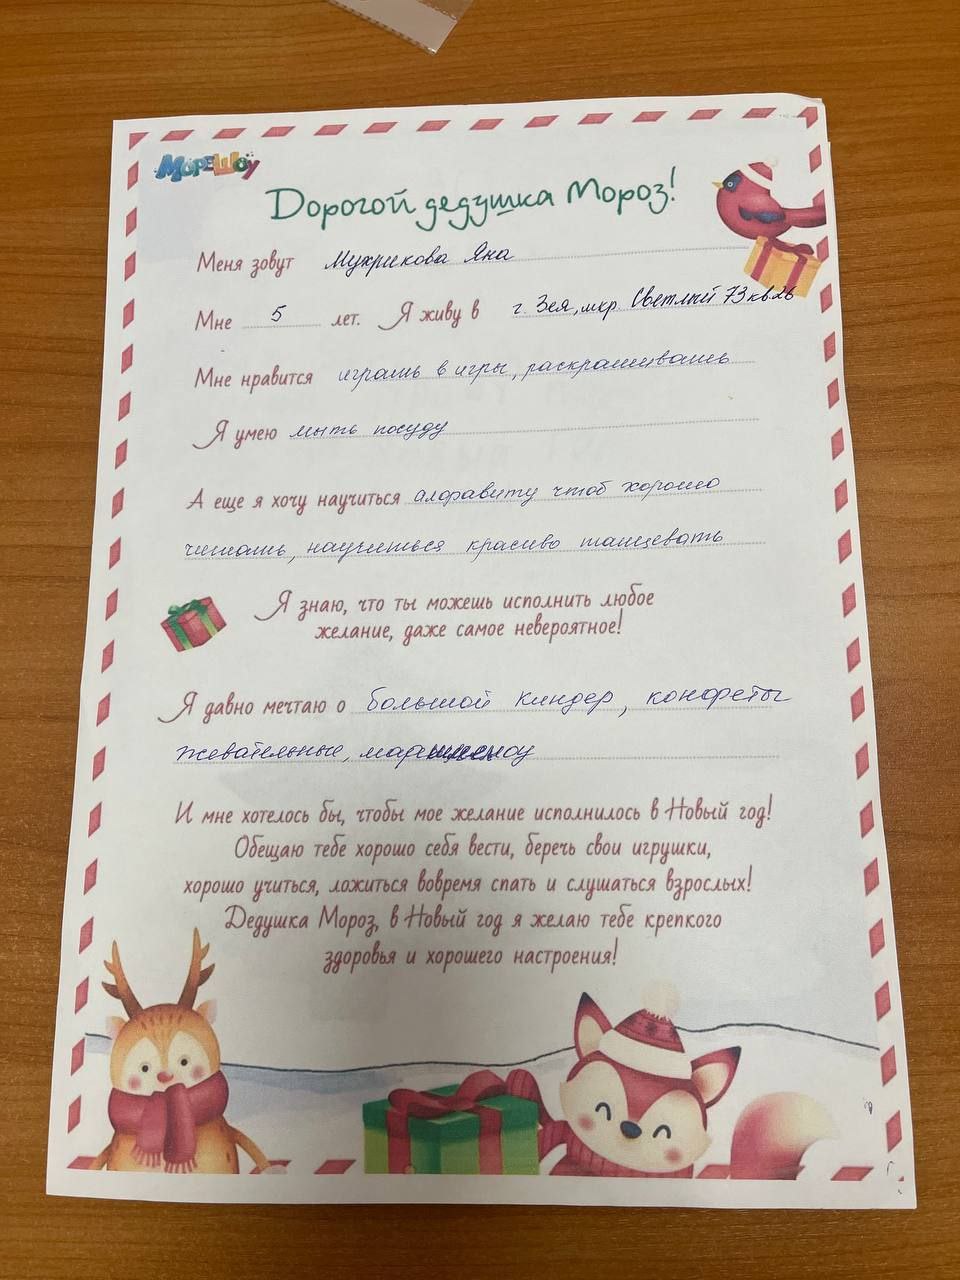 МореШоу
Дорогой дедушка Мороз!
Меня зовут Мухрикова Яна
Мне 5 лет. Я живу в г. Зея, мкр. Светлый 73 кв 26
Мне нравится играть в игры, раскрашивать
Я умею мыть посуду
А еще я хочу научиться алфавиту чтоб хорошо
читать, научиться красиво танцевать
Я знаю, что ты можешь исполнить любое
желание, даже самое невероятное!
Я давно мечтаю о большой киндер, конфеты
жевательные,
И мне хотелось бы, чтобы мое желание исполнилось в Новый год!
Обещаю тебе хорошо себя вести, беречь свои игрушки,
хорошо учиться, ложиться вовремя спать и слушаться взрослых!
Дедушка Мороз, в Новый год я желаю тебе крепкого
здоровья и хорошего настроения!